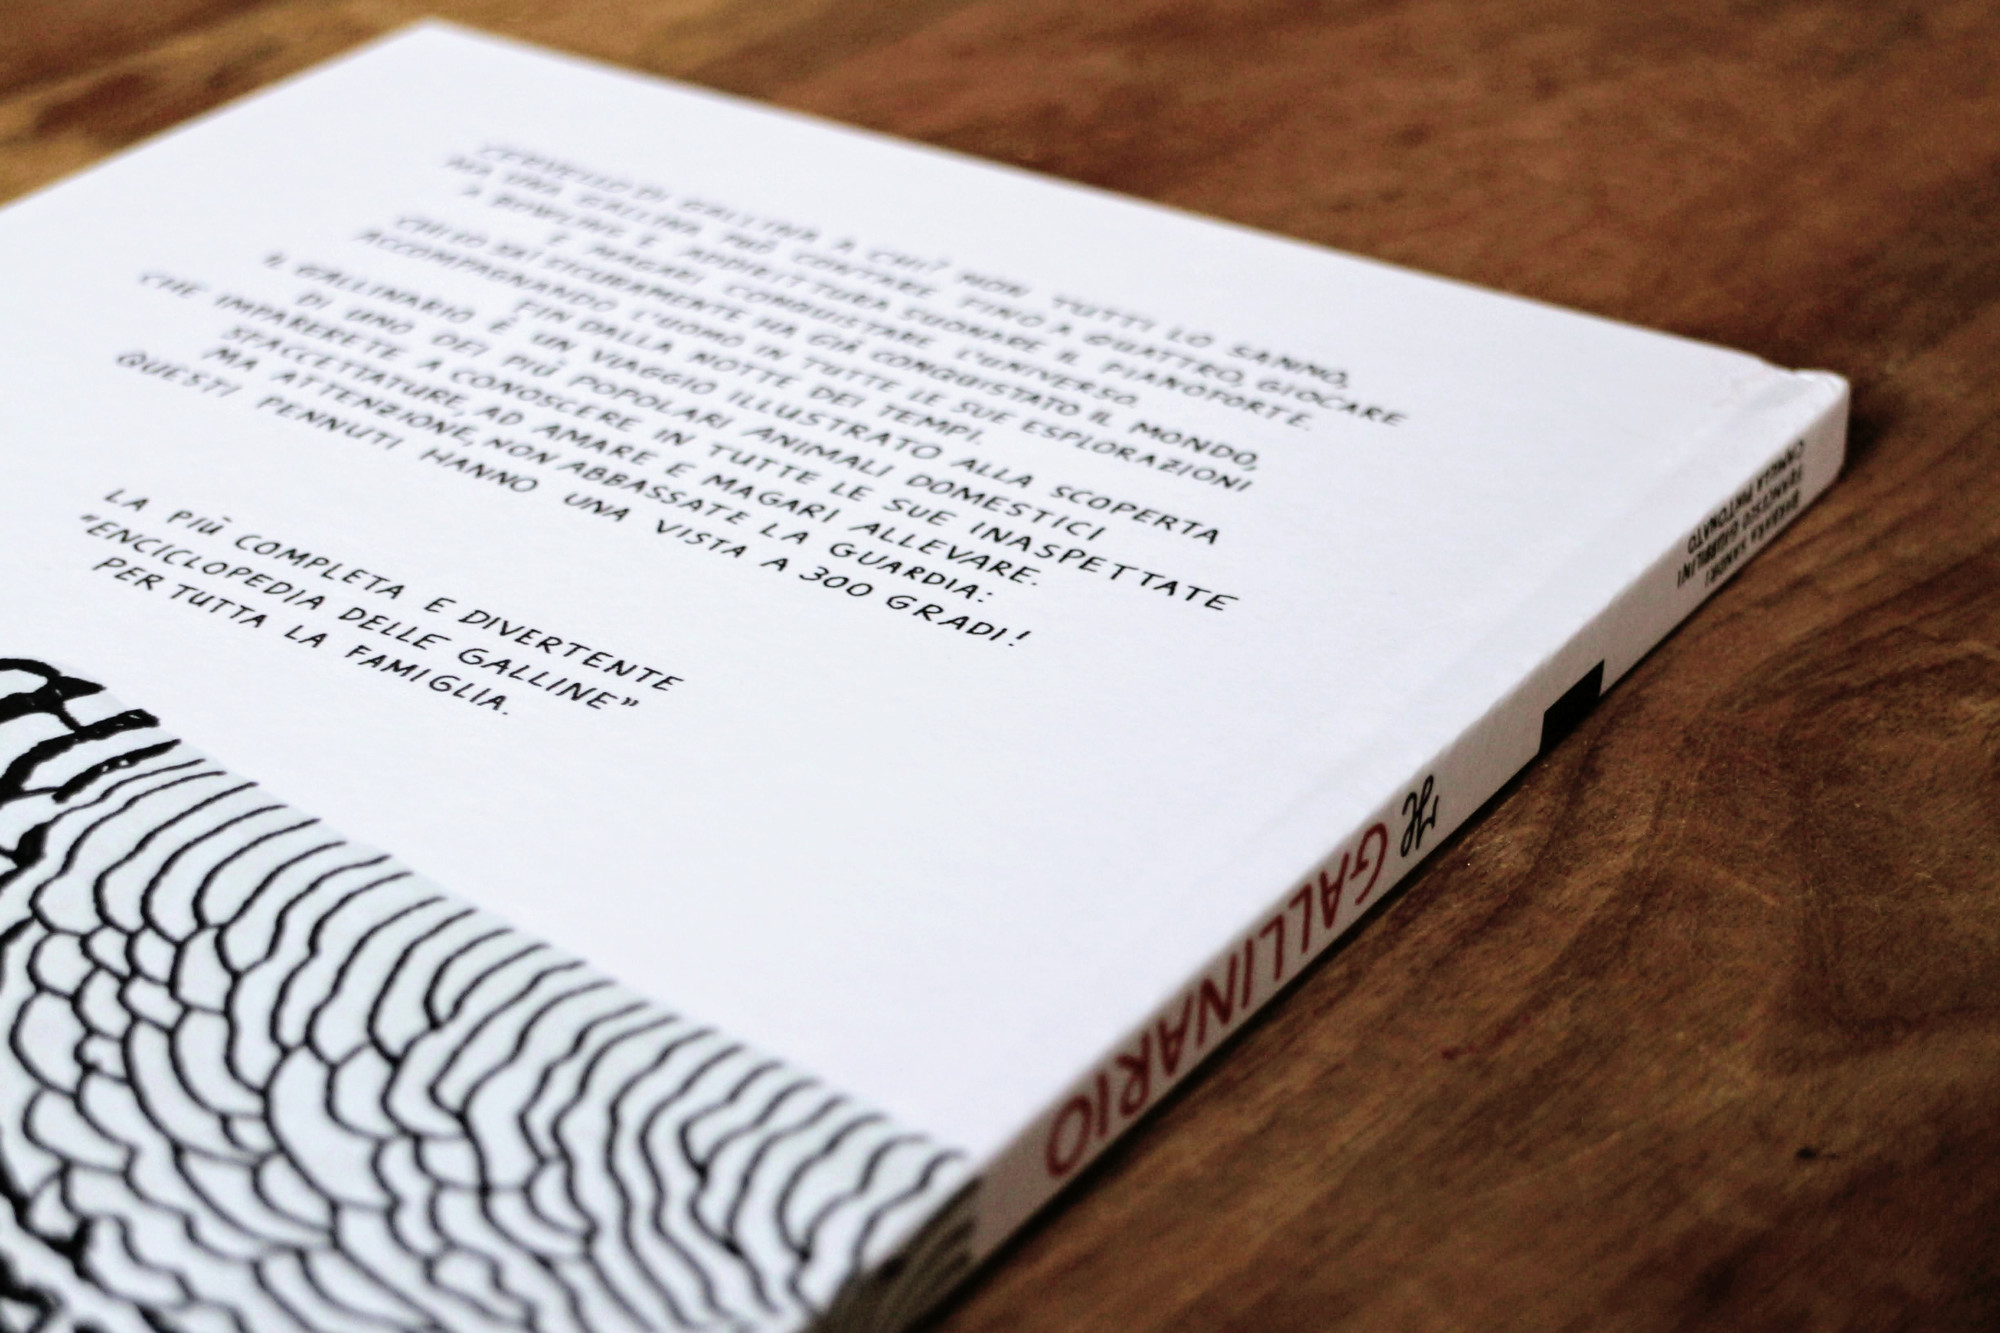 CERVELLO DI GALLINA A CHI? NON TUTTI LO SANNO,
MA UNA GALLINA PUÒ CONTARE FINO A QUATTRO, GIOCARE
A BOWLING E ADDIRITTURA SUONARE IL PIANOFORTE.
E MAGARI CONQUISTARE L'UNIVERSO.
CHI LO SA! SICURAMENTE HA GIÀ CONQUISTATO IL MONDO,
ACCOMPAGNANDO L'UOMO IN TUTTE LE SUE ESPLORAZIONI
FIN DALLA NOTTE DEI TEMPI.
IL GALLINARIO È UN VIAGGIO ILLUSTRATO ALLA SCOPERTA
DI UNO DEI PIÙ POPOLARI ANIMALI DOMESTICI
CHE IMPARERETE A CONOSCERE IN TUTTE LE SUE INASPETTATE
SFACCETTATURE, AD AMARE E MAGARI ALLEVARE.
MA ATTENZIONE, NON ABBASSATE LA GUARDIA:
QUESTI PENNUTI HANNO UNA VISTA A 300 GRADI!
LA PIÙ COMPLETA E DIVERTENTE
"ENCICLOPEDIA DELLE GALLINE"
PER TUTTA LA FAMIGLIA.
Il GALLINARIO
BARBARA SANDRI
FRANCESCO GIUBBILINI
CAMILLA PINTONATO